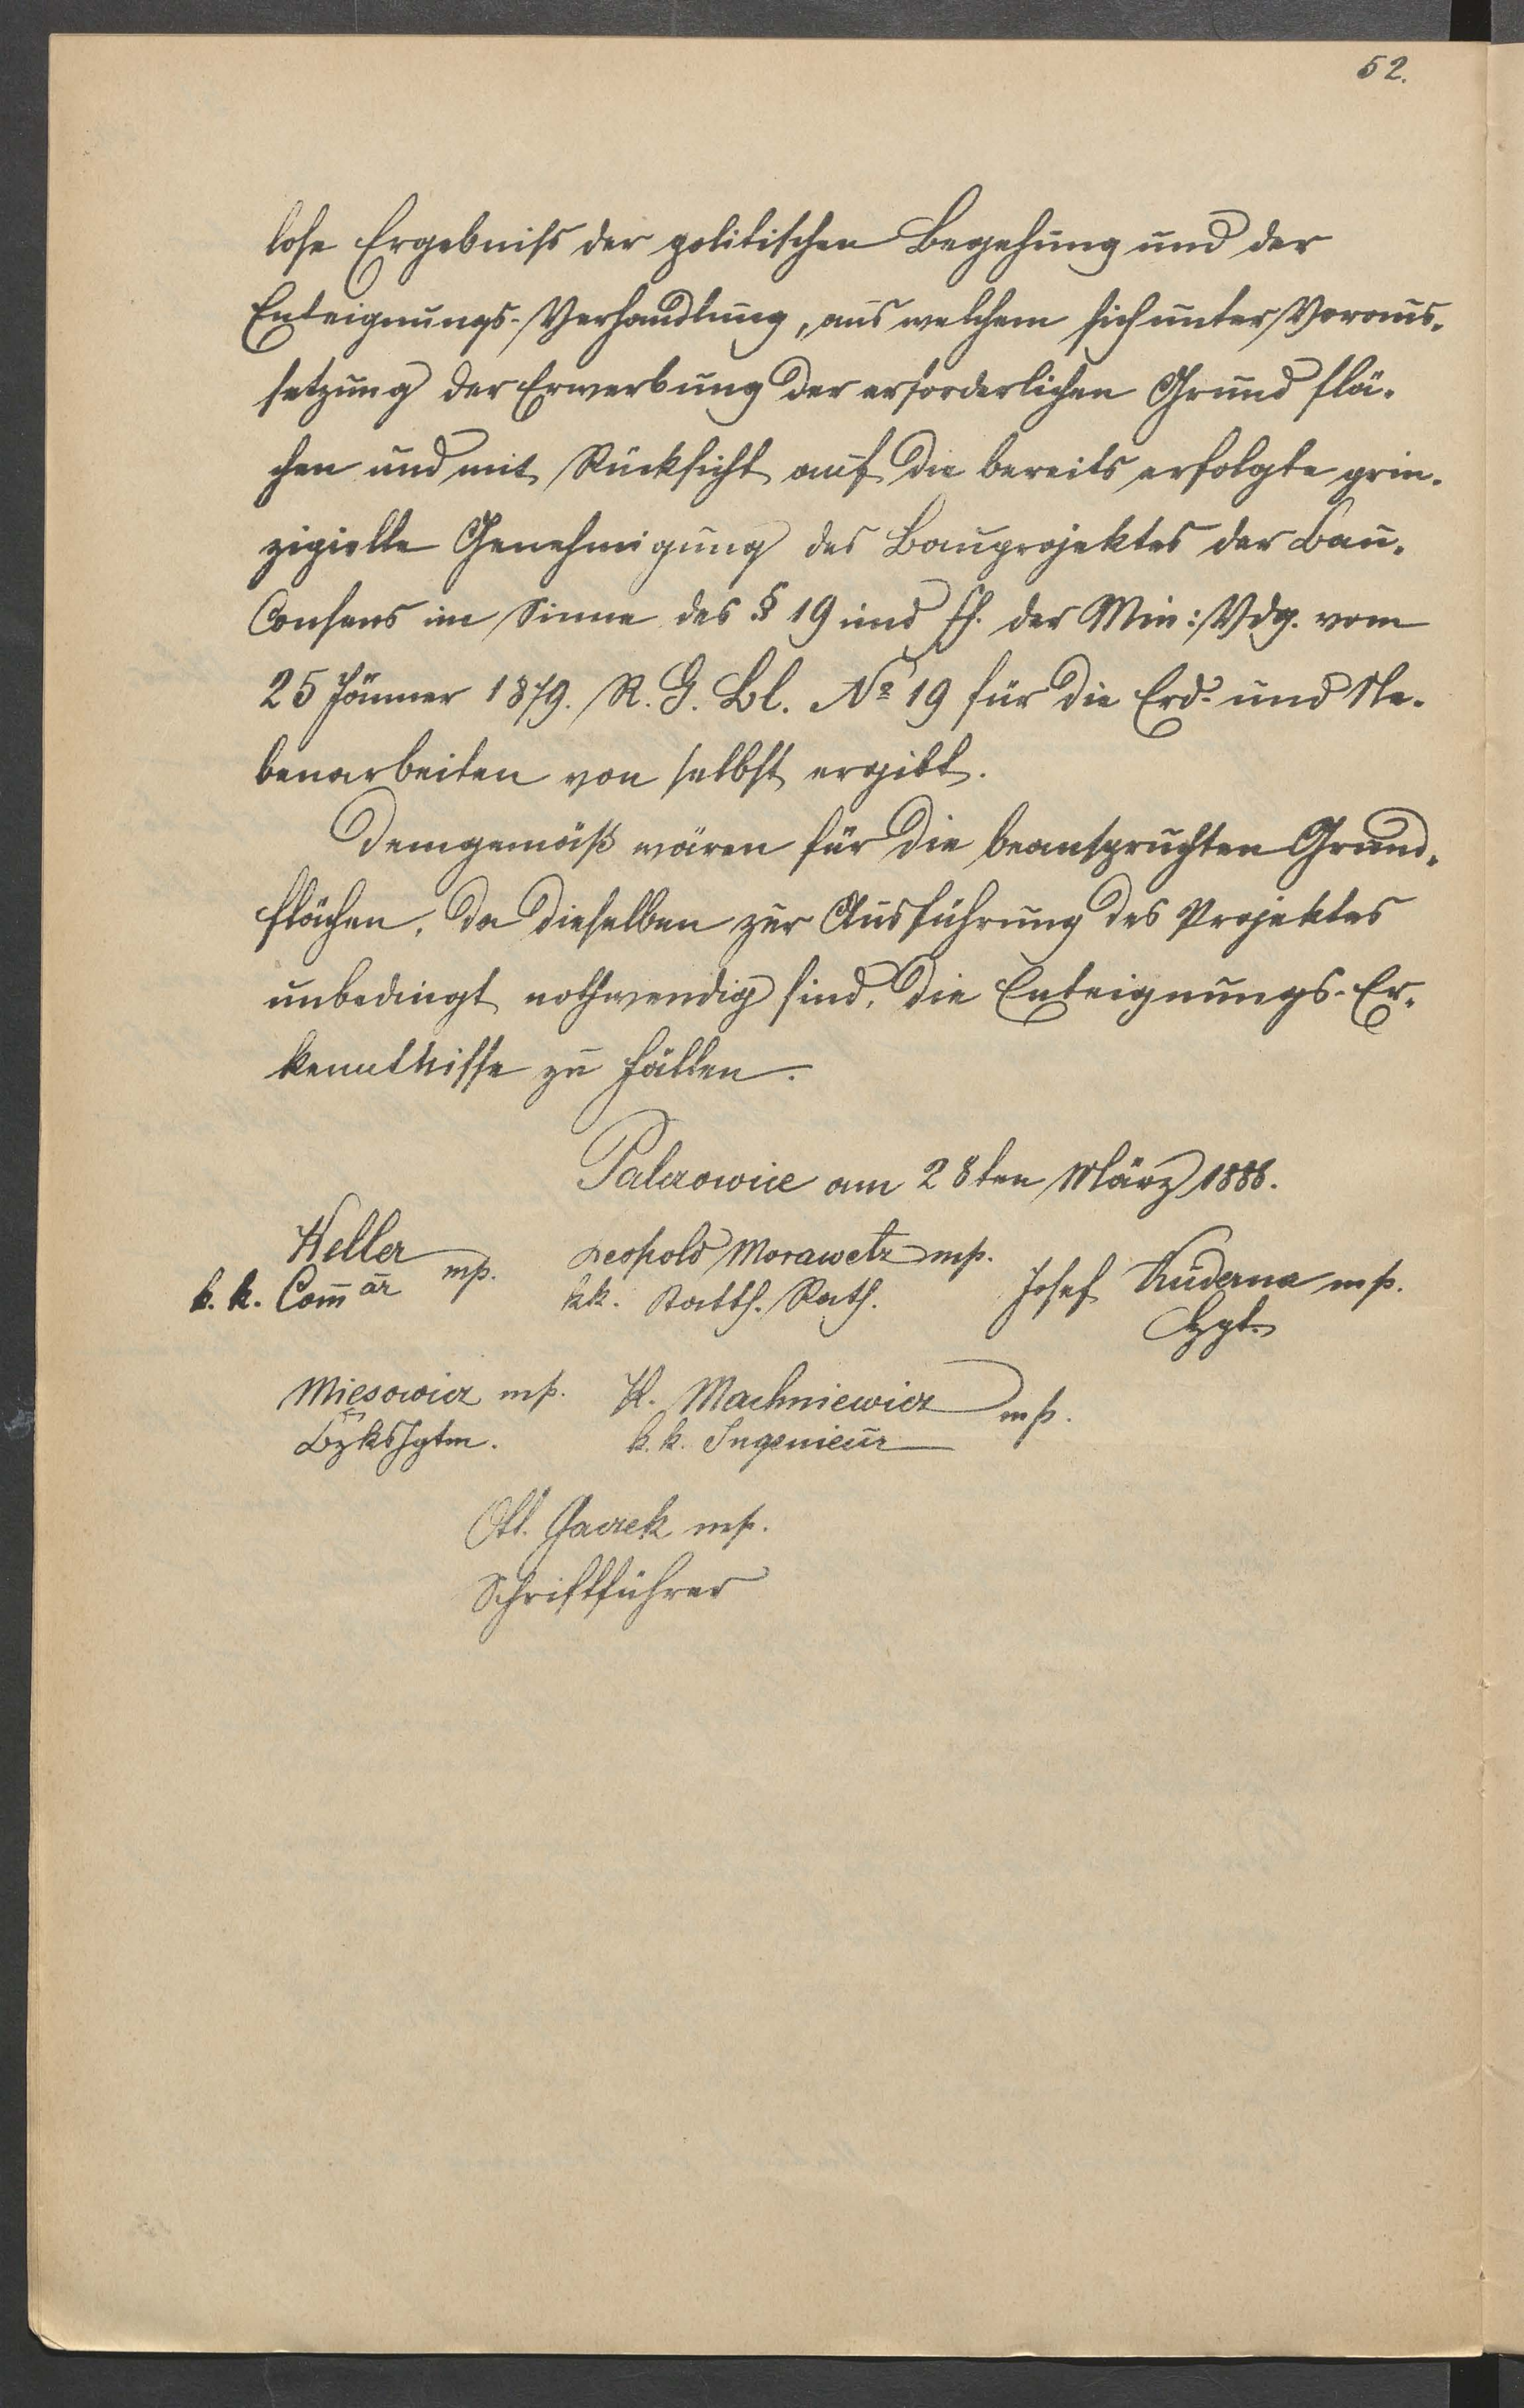 52.
lose Ergebniss der politischen Begehung und der
Enteignungs-Verhandlung, aus welchem sich unter Voraus-
setzung der Erwerbung der erforderlichen Grund flä-
chen und mit Rücksicht auf die bereits erfolgte prin-
zipielle Genehmigung des Bauprojektes der Bau-
Consens im Sinne des § 19 und ff. der Min: Vdg. vom
25 Jänner 1879. R. G. Bl. № 19 für die Erd- und Ne-
benarbeiten von selbst ergibt.
Demgemäß wären für die beanspruchten Grund-
flächen, da dieselben zur Ausführung des Projektes
unbedingt nothwendig sind, die Enteignungs-Er-
kenntnisse zu fällen.
Palczowice am 28ten März 1886.
Heller mp. Leopold Morawetz mp.
k. k. Comär kk. Statth. Rath. Josef Kuderna mp.
Miesowicz mp. K. Machniewicz mp.
BzksHptm. k. k. Ingenieur
Ott. Gaczek mp.
Schriftführer